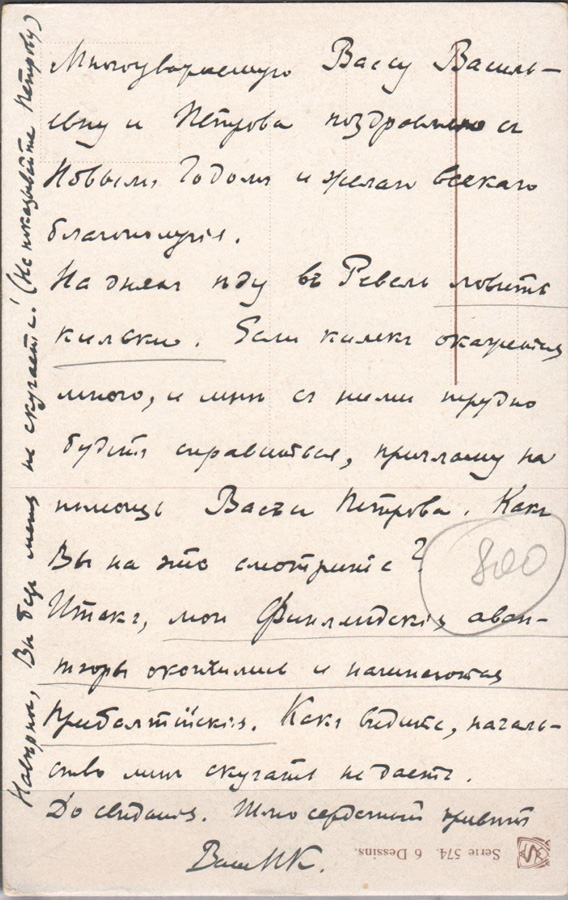 Многоуважаемую Вассу Василь-
евну и Петрова поздравляю съ
Новымъ Годомъ и желаю всякаго
благополучія.
На дняхъ иду въ Ревель ловить
кильки. Если килекъ окажется
много, и мнѣ съ ними трудно
будетъ справиться, приглашу на
помощь Васъ и Петрова. Какъ
Вы на это смотрите?
Итакъ, мои Финляндскія аван-
тюры окончились и начинаются
Прибалтійскія. Какъ видите, началь-
ство мнѣ скучать не даетъ.
До свиданія. Шлю сердечный привѣтъ
Ваш МК.
Навѣрно, Вы безъ меня не скучаете! (Не показывайте Петрову)
800
Serie 574. 6 Dessins.